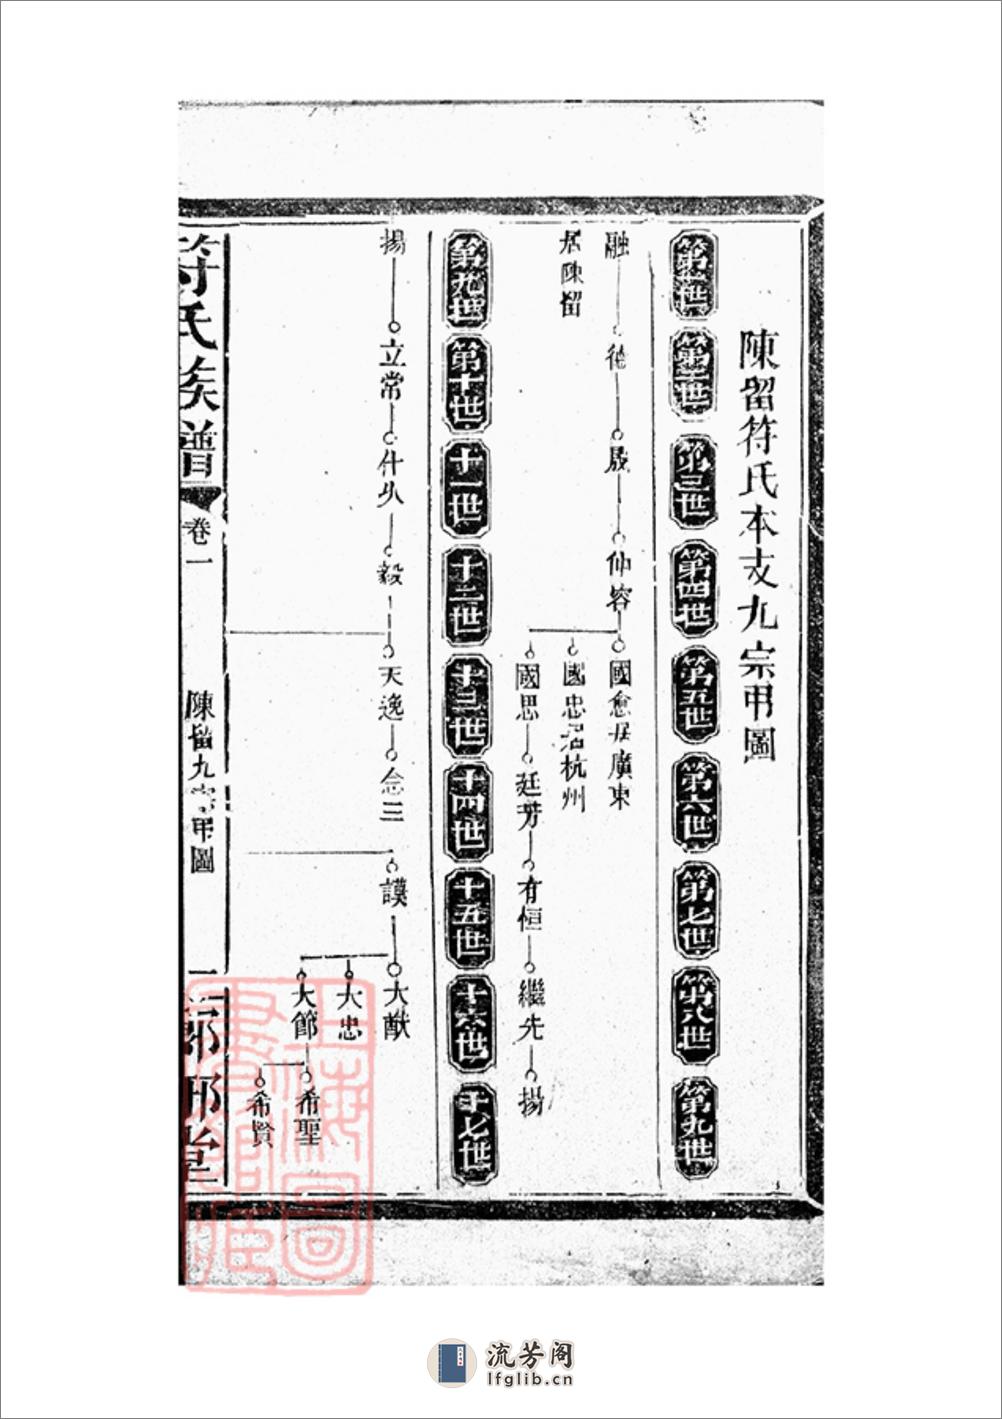 陳留符氏本支九宗弔圖
第一世
第二世
第三世
第四世
第五世
第六世
第七世
第八世
第九世
融
德
晟
仲容
國愈居廣東
居陳留
國忠居杭州
國思
廷芳
有恒
繼先
揚
第九世
第十世
十一世
十二世
十三世
十四世
十五世
十六世
十七世
揚
立常
什久
毅
天逸
念三
謨
大猷
大忠
大節
希聖
希賢
符氏族譜
卷一
陳留九宗弔圖
一
瑯邪堂
上海圖書館藏
流芳阁
lfglib.cn